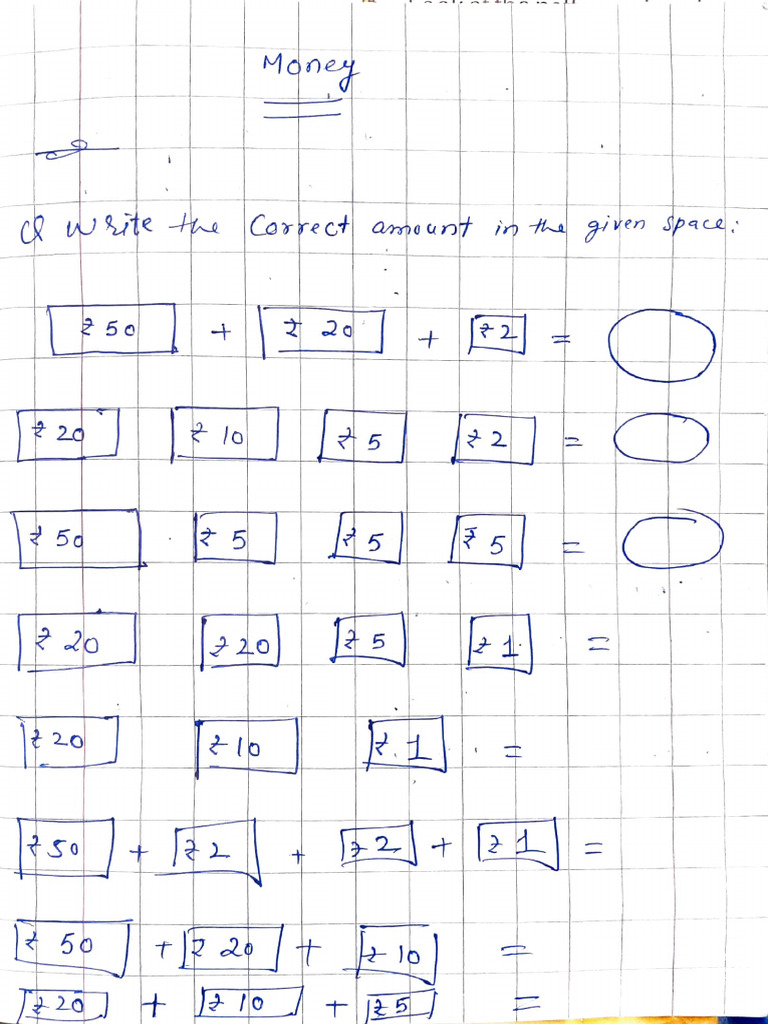 Money
Q Write the Correct amount in the given space:
₹ 50 + ₹ 20 + ₹ 2 =
₹ 20 ₹ 10 ₹ 5 ₹ 2 =
₹ 50 ₹ 5 ₹ 5 ₹ 5 =
₹ 20 ₹ 20 ₹ 5 ₹ 1 =
₹ 20 ₹ 10 ₹ 1 =
₹ 50 + ₹ 2 + ₹ 2 + ₹ 1 =
₹ 50 + ₹ 20 + ₹ 10 =
₹ 20 + ₹ 10 + ₹ 5 =